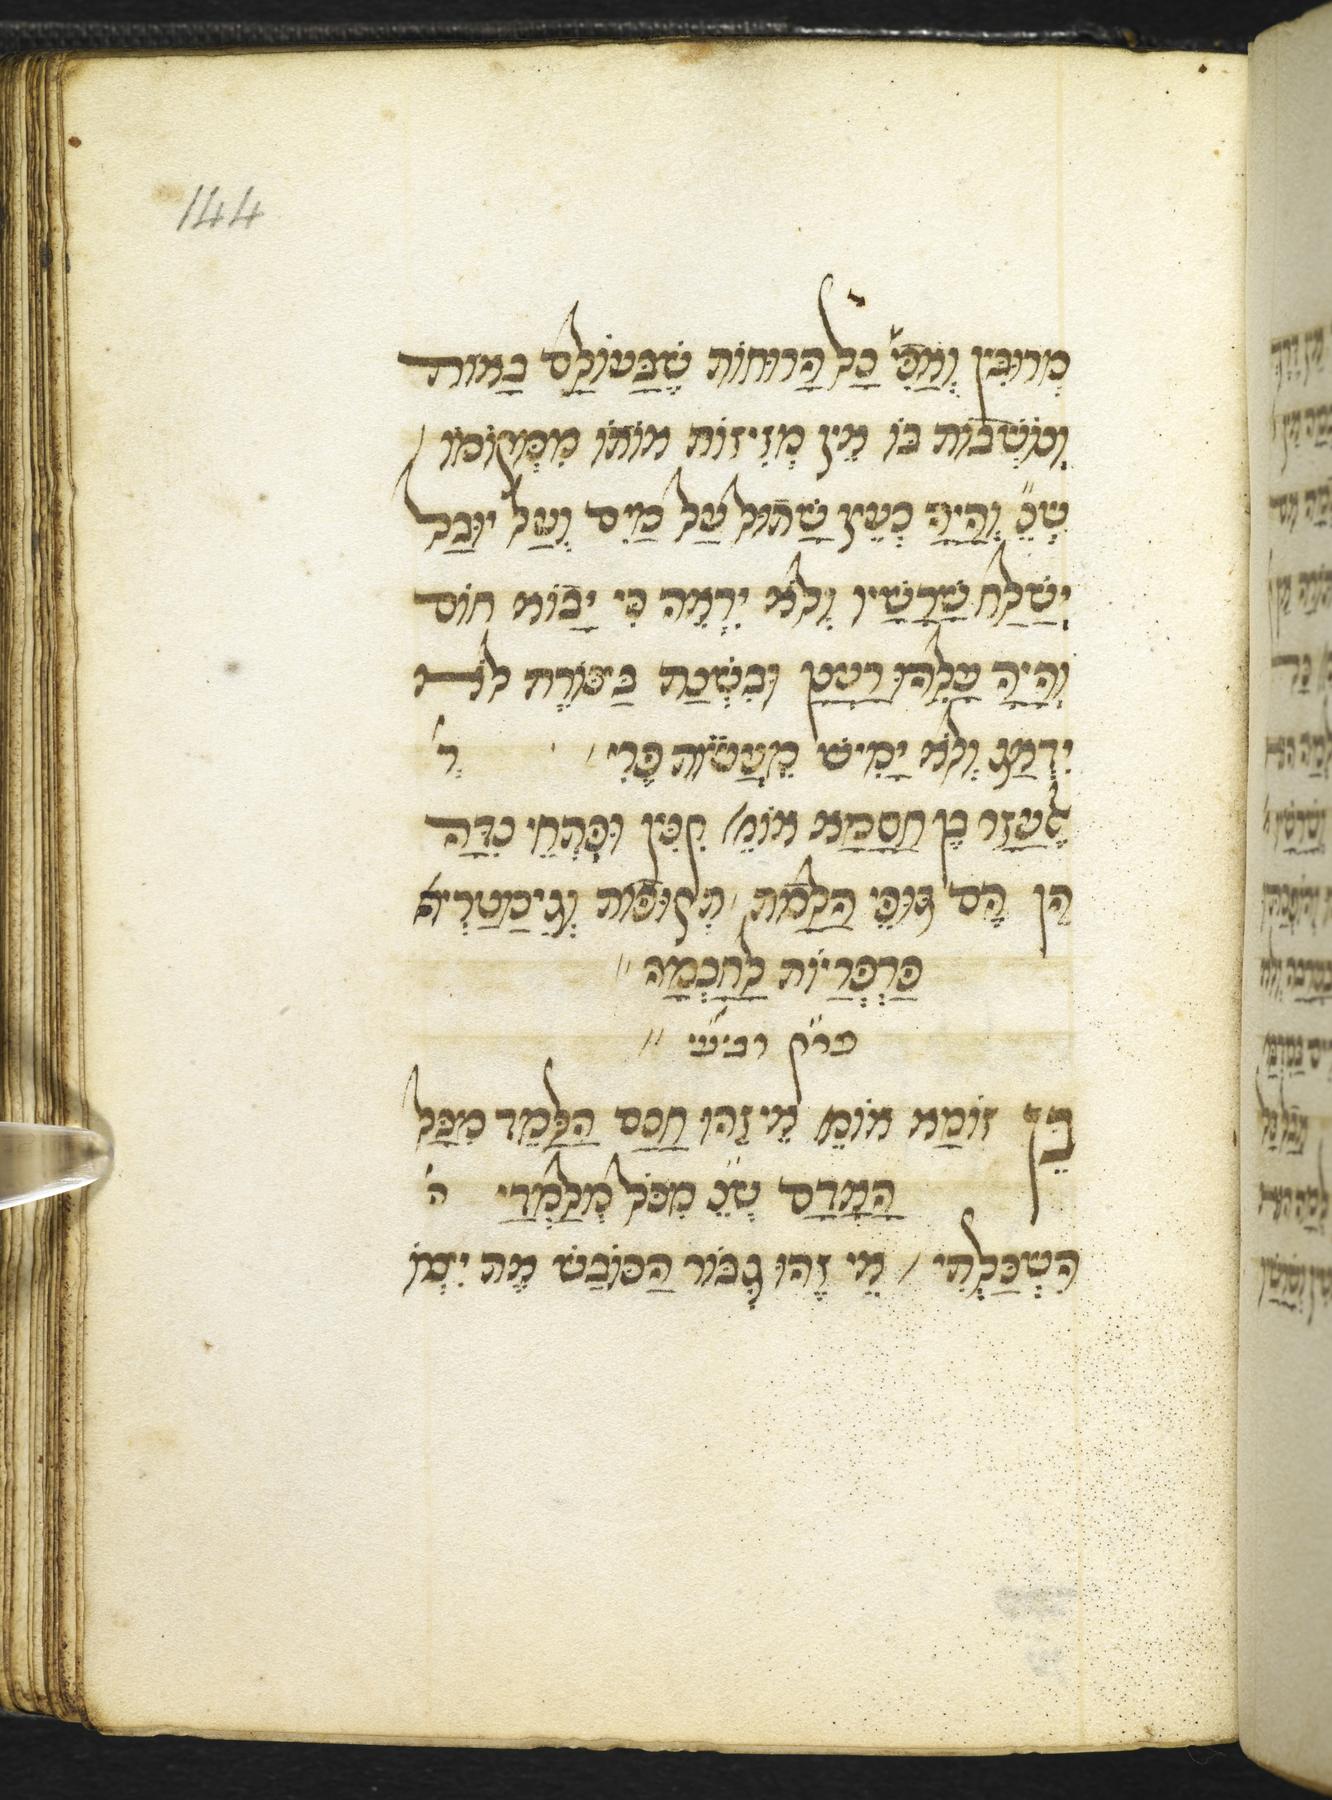 144
מְרוּבִּין וְאֲפִּי' כַל הָרוּחוֹת שֶׁבַּעוֹלַם בָאות
וְנֹשְׁבוֹת בּוֹ אֵין מְזִיזוֹת אוֹתוֹ מִמְּקוֹמוֹ /
שְׁנֶ" וְהָיָה כְּעֵץ שָׁתוּל עַל מַיִם וְעַל יוּבַל
יְשַׁלַח שָׁרָשָׁיו וְלֹא יִרְאֶה כִּי יָבוֹא חוֹם
וְהָיָה עָלֵהוּ רַעֲנָן וּבִשְׁנַת בַּצּוֹרֶת לֹא
יִדְאַג וְלֹא יָמִישׁ מֵעֲשׂוֹת פֶּרִי / ר'
לֶעְזַר בֶּן חִסְמָא אוֹמֵ' קִנִּין וּפִתְחֵי נִדָּה
הֵן הֵם גּוּפֵי הֲלָכוֹת / תְּקוּפוֹת וְגִימַטְרִיאָ'
פַּרְפְּרִיּוֹת לַחָכְמָה //
פר"ק רבי"עי //
בֶּן זוֹמָא אוֹמֵ' אֵי זֶהוּ חָכָם הַלָּמֵד מִכָּל
הָאָדָם שְׁנֶ" מִכֹּל מְלַמְּדַי ה'
הִשְׂכַּלְתִּי / אֵי זֶהוּ גִבּוֹר הַכּוֹבֵשׁ אֶת יִצְרוֹ